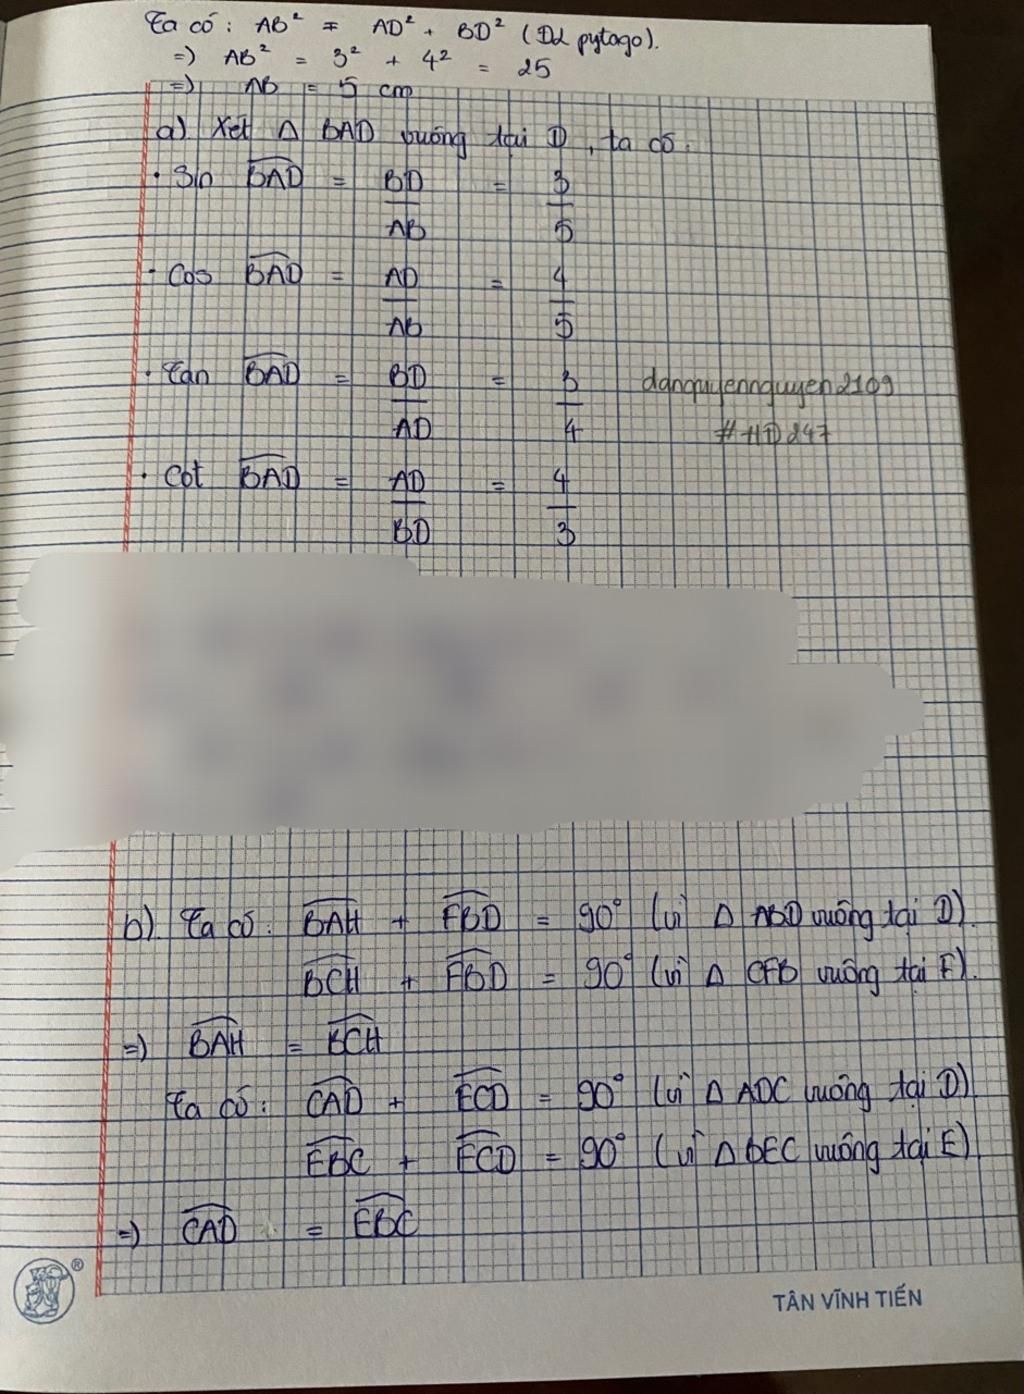 Ta có: AB² = AD² + BD² (ĐL pytago).
=) AB² = 3² + 4² = 25
=) AB = 5 cm
a) Xét Δ BAD vuông tại D, ta có.
· Sin BAD = BD/AB = 3/5
· Cos BAD = AD/AB = 4/5
· Tan BAD = BD/AD = 3/4
danquyennguyen2109
#HD247
· Cot BAD = AD/BD = 4/3
b) Ta có: BAH + FBD = 90° (vì Δ ABD vuông tại D).
BCH + FBD = 90° (vì Δ CFB vuông tại F).
=) BAH = BCH
Ta có: CAD + ECD = 90° (vì Δ ADC vuông tại D)
EBC + ECD = 90° (vì Δ bEC vuông tại E)
=) CAD = EBC
®
TÂN VĨNH TIẾN